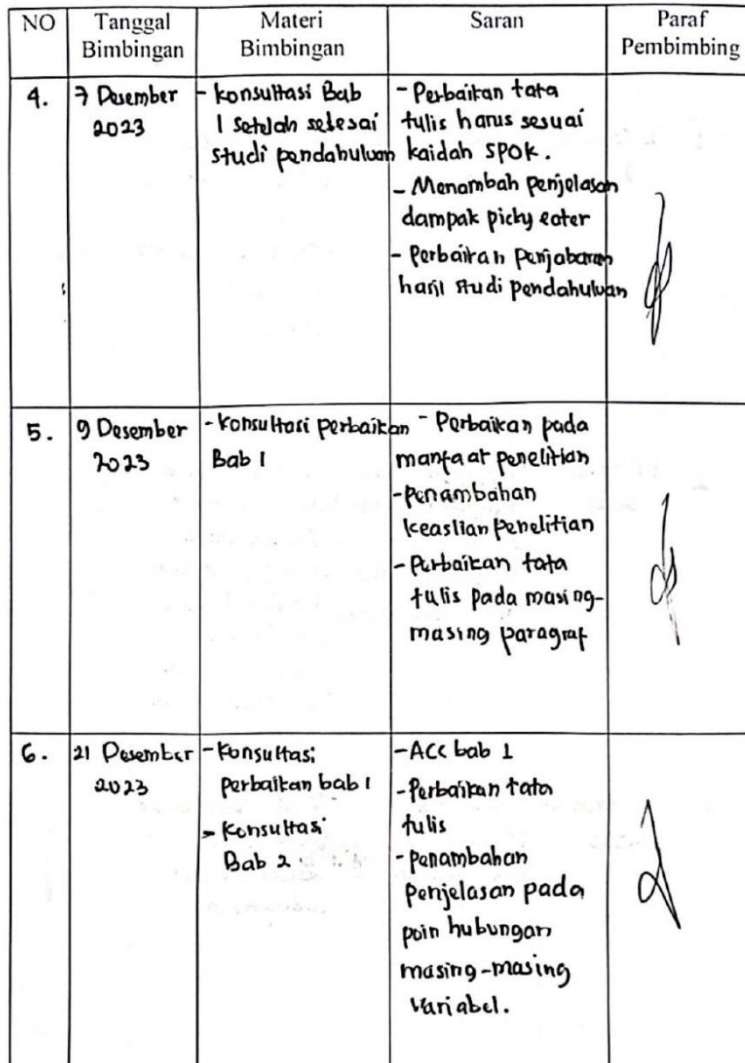 NO Tanggal Bimbingan Materi Bimbingan Saran Paraf Pembimbing
4. 7 Desember 2023
- Konsultasi Bab
1 setelah selesai
studi pendahuluan
- Perbaikan tata
tulis harus sesuai
kaidah SPOK.
- Menambah penjelasan
dampak picky eater
- Perbaikan penjabaran
hasil studi pendahuluan
5. 9 Desember 2023
- Konsultasi perbaikan
Bab 1
- Perbaikan pada
manfaat penelitian
- penambahan
keaslian penelitian
- Perbaikan tata
tulis pada masing-
masing paragraf
6. 21 Desember 2023
- Konsultasi
perbaikan bab 1
- Konsultasi
Bab 2
- ACC bab 1
- Perbaikan tata
tulis
- penambahan
penjelasan pada
poin hubungan
masing-masing
variabel.